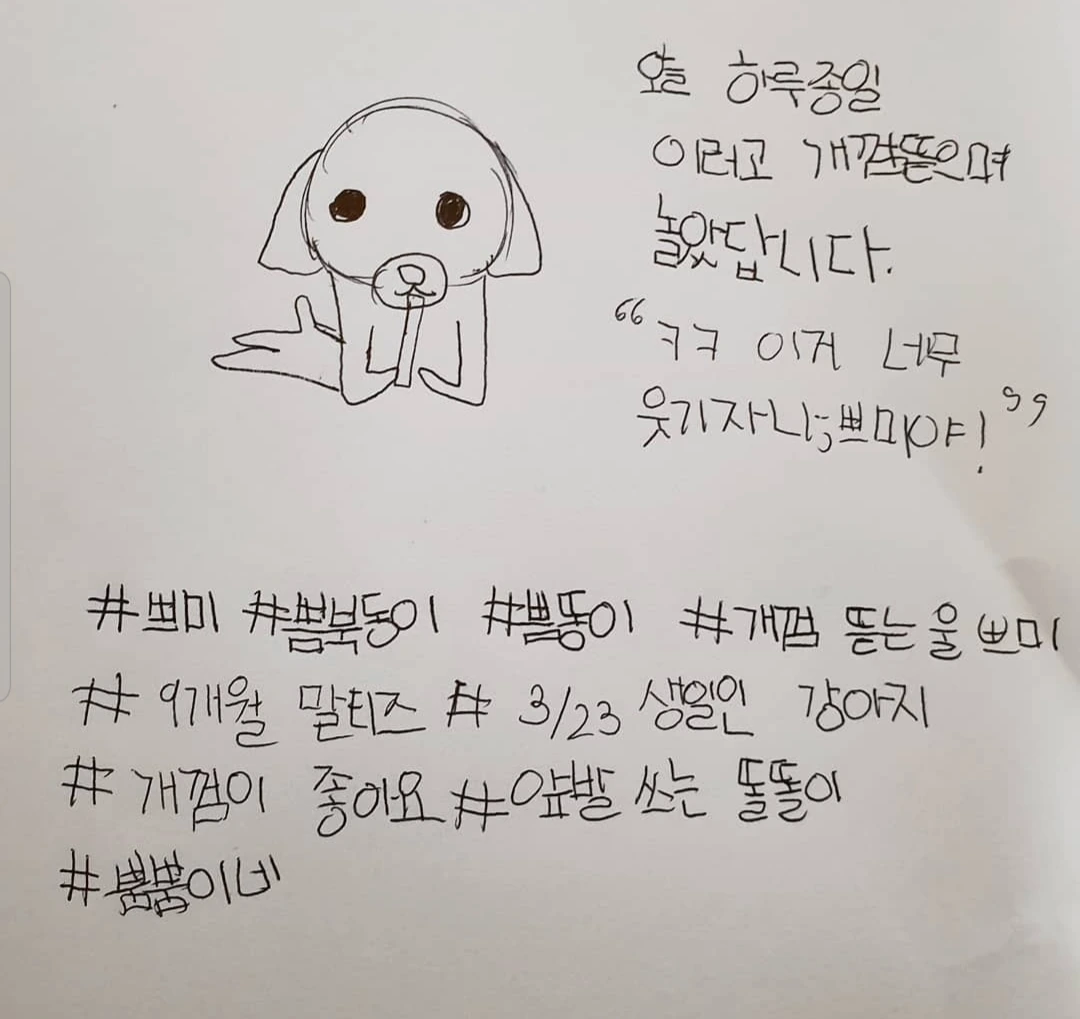 오늘 하루종일
이러고 개껌뜯으며
놀았답니다.
“ㅋㅋ 이거 너무
웃기자나;; 쁘미야!”
#쁘미 #쁨북동이 #쁨뚱이 #개껌 뜯는 울 쁘미
# 9개월 말티즈 # 3/23 생일인 강아지
# 개껌이 좋아요 #앞발 쓰는 똘똘이
#쁨쁨이네